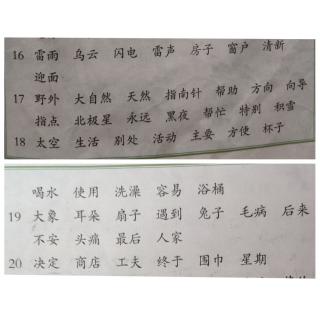 16 雷雨 乌云 闪电 雷声 房子 窗户 清新
迎面
17 野外 大自然 天然 指南针 帮助 方向 向导
指点 北极星 永远 黑夜 帮忙 特别 积雪
18 太空 生活 别处 活动 主要 方便 杯子
喝水 使用 洗澡 容易 浴桶
19 大象 耳朵 扇子 遇到 兔子 毛病 后来
不安 头痛 最后 人家
20 决定 商店 工夫 终于 围巾 星期